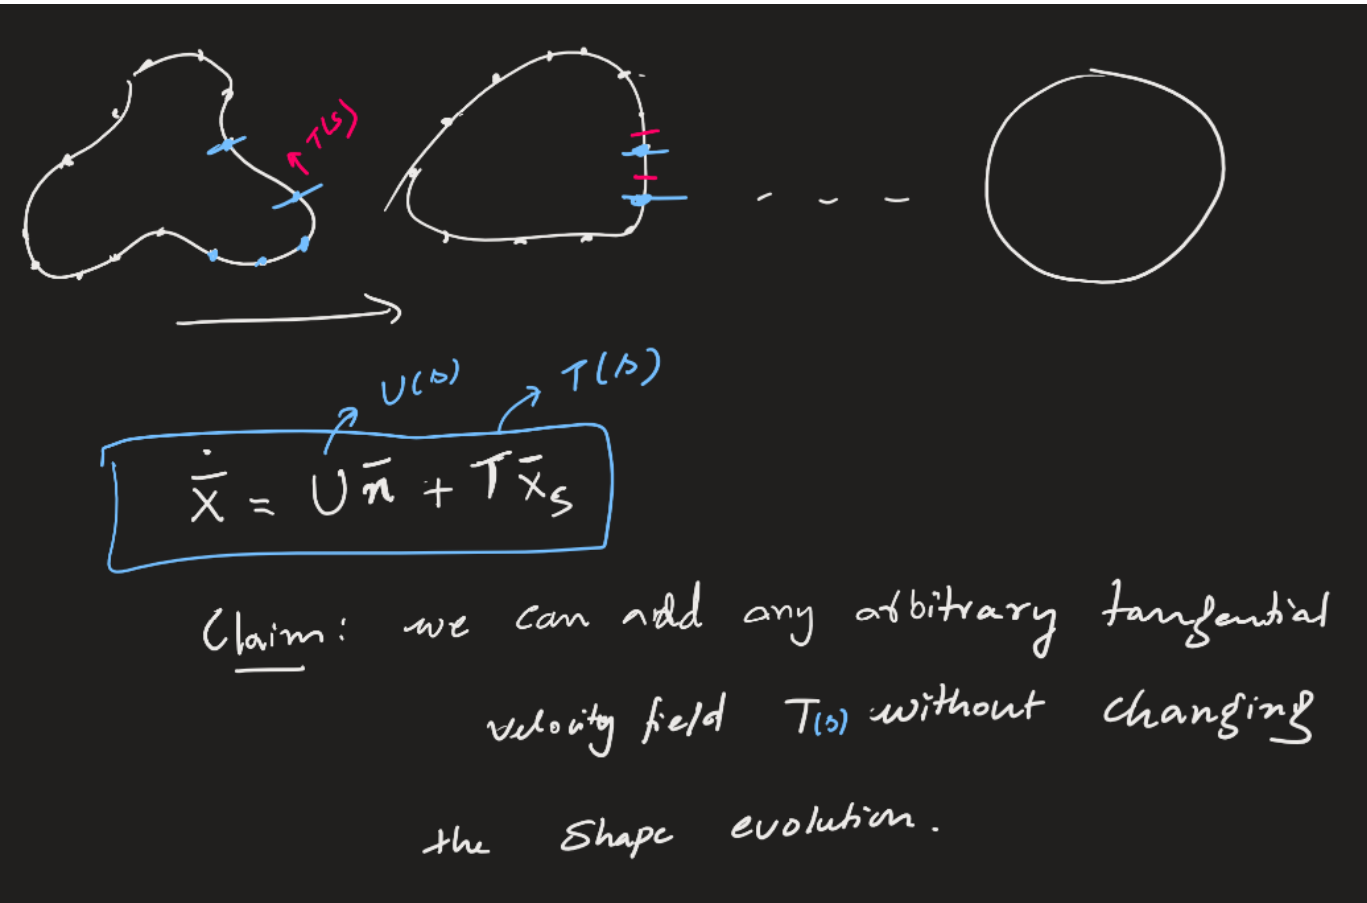 T(s)
U(s)
T(s)
ẋ̄ = U n̄ + T x̄ₛ
Claim: we can add any arbitrary tangential
velocity field T(s) without changing
the shape evolution.